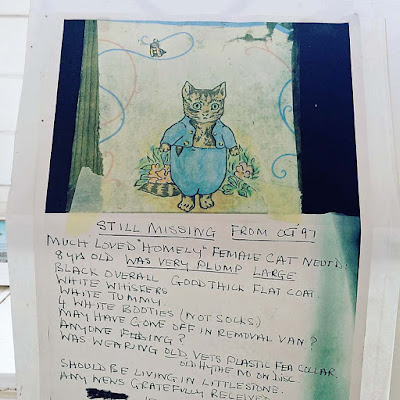 STILL MISSING FROM OCT '97
MUCH LOVED "HOMELY" FEMALE CAT NEUTD:
8 yrs OLD WAS VERY PLUMP LARGE
BLACK OVERALL GOOD THICK FLAT COAT.
WHITE WHISKERS
WHITE TUMMY.
4 WHITE BOOTIES (NOT SOCKS)
MAY HAVE GONE OFF IN REMOVAL VAN?
ANYONE FEEDING?
WAS WEARING OLD VETS PLASTIC FLEA COLLAR.
OLD HYTHE NO ON DISC.
SHOULD BE LIVING IN LITTLESTONE.
ANY NEWS GRATEFULLY RECEIVED